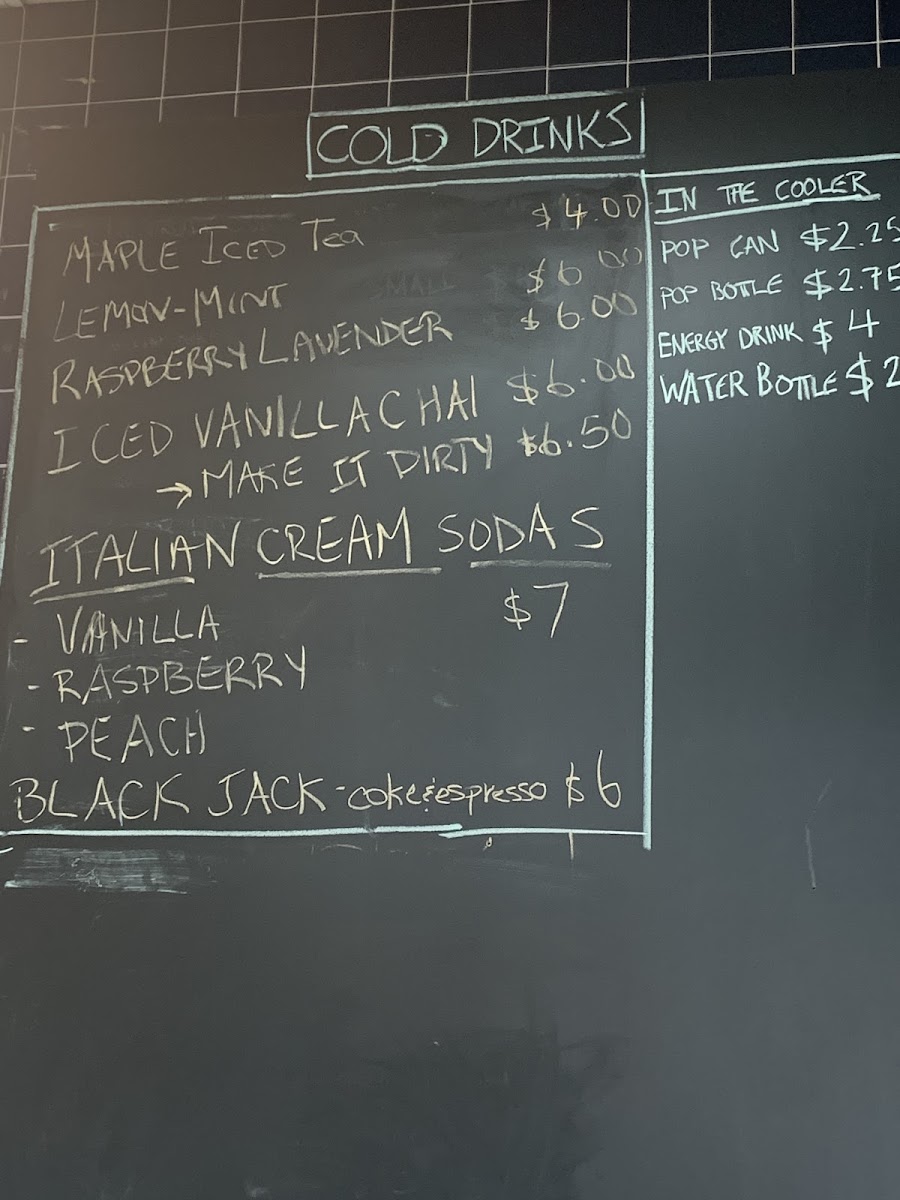 COLD DRINKS
MAPLE ICED Tea $4.00
LEMON-MINT $6.00
RASPBERRY LAVENDER $6.00
ICED VANILLA CHAI $6.00
→ MAKE IT DIRTY $6.50
ITALIAN CREAM SODAS
$7
- VANILLA
- RASPBERRY
- PEACH
BLACK JACK - coke & espresso $6
IN THE COOLER
POP CAN $2.25
POP BOTTLE $2.75
ENERGY DRINK $4
WATER BOTTLE $2